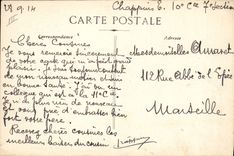 29.9.14
Chappuis E. 10e Cie 7e Section
CARTE POSTALE
Chères Cousines
Je vous remercie sincèrement
de votre carte qui m'a fait grand
plaisir. Je suis toujours content
de mon nouveau métier et suis
en bonne Santé. J'ai vu un
collègue qui est à la 11e Cie
Je n'ai de plus rien de nouveau
à vous prie d'embrasser bien
fort votre père.
Recevez chères cousines les
meilleurs baisers du cousin
Chappuis
Mesdemoiselles Amaret
112 Rue Abbé de l'Epée
Marseille